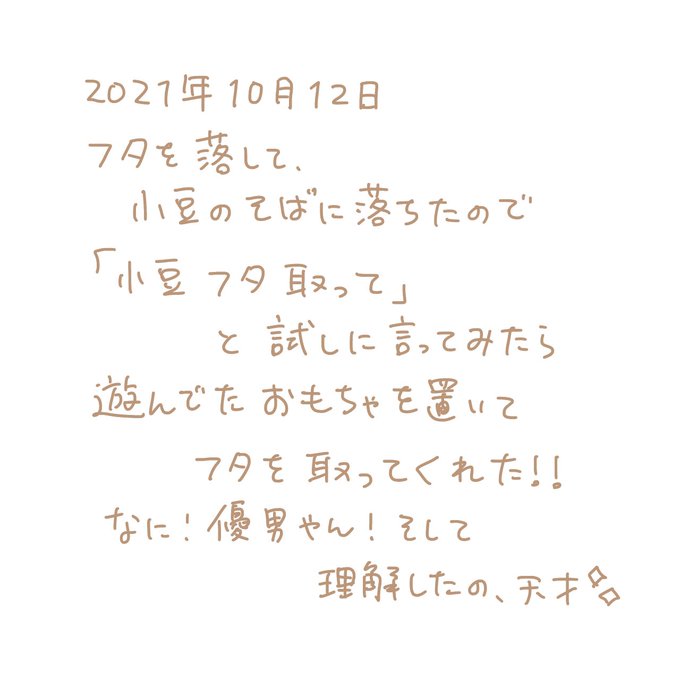 2021年10月12日
フタを落して、
小豆のそばに落ちたので
「小豆 フタ 取って」
と 試しに言ってみたら
遊んでた おもちゃを置いて
フタを取ってくれた!!
なに!優男やん!そして
理解したの、天才